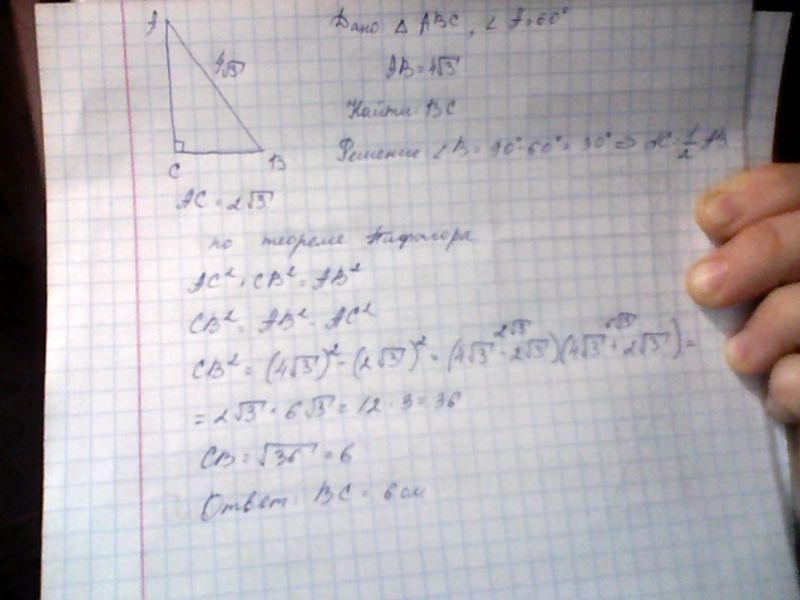 A
4√3
C
B
Дано △ ABC, ∠ A = 60°
AB = 4√3
Найти BC
Решение ∠ B = 90° - 60° = 30° ⇒ AC = 1/2 AB
AC = 2√3
по теореме Пифагора
AC² + CB² = AB²
CB² = AB² - AC²
2√3 6√3
CB² = (4√3)² - (2√3)² = (4√3 - 2√3)(4√3 + 2√3) =
= 2√3 · 6√3 = 12 · 3 = 36
CB = √36 = 6
Ответ: BC = 6 см